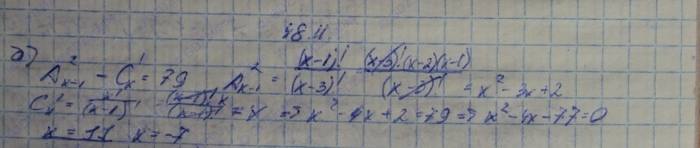 48.11
б) A²ₓ₋₁ − C¹ₓ = 79 A²ₓ₋₁ = (x-1)!/(x-3)! (x-3)!(x-2)(x-1)/(x-3)! = x² - 3x + 2
C¹ₓ = x!/(x-1)! (x-1)!x/(x-1)! = x => x² - 4x + 2 = 79 => x² - 4x - 77 = 0
x = 11 x = -7